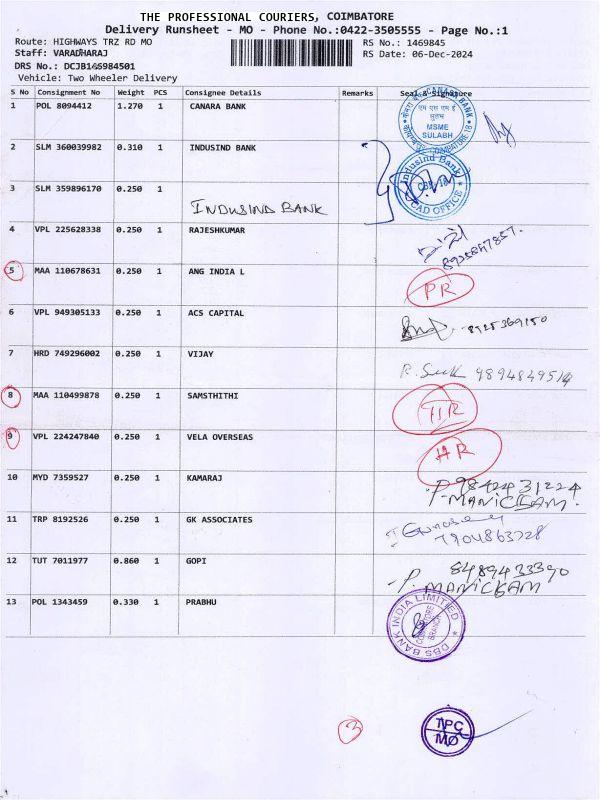 THE PROFESSIONAL COURIERS, COIMBATORE
Delivery Runsheet - MO - Phone No.:0422-3505555 - Page No.:1
Route: HIGHWAYS TRZ RD MO
RS No.: 1469845
Staff: VARADHARAJ
RS Date: 06-Dec-2024
DRS No.: DCJB166984501
Vehicle: Two Wheeler Delivery
S No Consignment No Weight PCS Consignee Details Remarks Seal & Signature
1 POL 8094412 1.270 1 CANARA BANK
CANARA BANK
MSME
SULABH
COIMBATORE-18
2 SLM 360039982 0.310 1 INDUSIND BANK
IndusInd Bank
CBE-18
CAD OFFICE
3 SLM 359896170 0.250 1
INDUSIND BANK
4 VPL 225628338 0.250 1 RAJESHKUMAR
5 MAA 110678631 0.250 1 ANG INDIA L
PR
6 VPL 949305133 0.250 1 ACS CAPITAL
8925369150
7 HRD 749296002 0.250 1 VIJAY
9894849514
8 MAA 110499878 0.250 1 SAMSTHITHI
HR
9 VPL 224247840 0.250 1 VELA OVERSEAS
HR
10 MYD 7359527 0.250 1 KAMARAJ
9842431224
P. MANICKAM.
11 TRP 8192526 0.250 1 GK ASSOCIATES
7904863728
12 TUT 7011977 0.860 1 GOPI
8489433390
P. MANICKAM
13 POL 1343459 0.330 1 PRABHU
DBS BANK INDIA LIMITED
COIMBATORE
BRANCH
3
TPC
MO